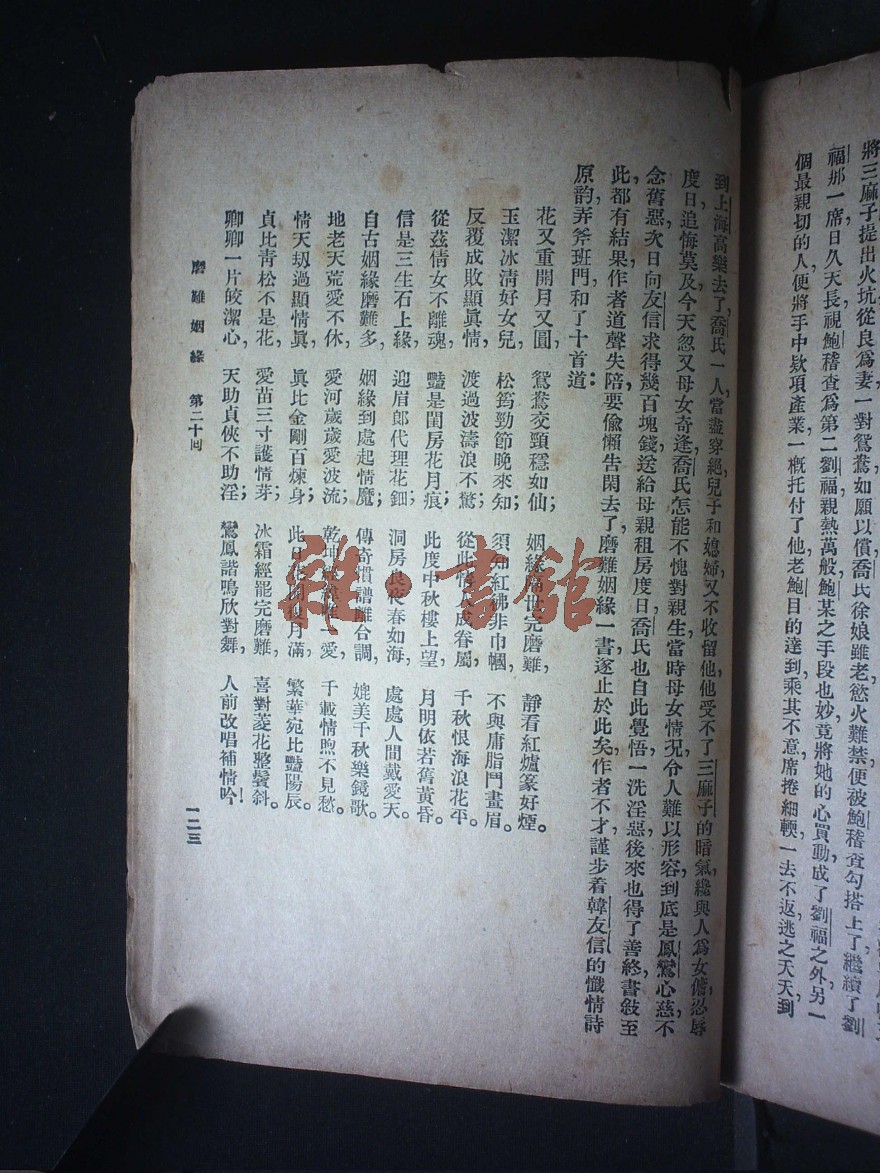 將三麻子提出火坑從良爲妻一對鴛鴦如願以償喬氏徐娘雖老慾火難禁便被鮑稽查勾搭上了繼續了劉
福那一席日久天長視鮑稽查爲第二劉福親熱萬般鮑某之手段也妙竟將她的心買動成了劉福之外另一
個最親切的人便將手中欵項產業一概托付了他老鮑目的達到乘其不意席捲細輭一去不返逃之夭夭到
到上海高樂去了喬氏一人當盡穿絕兒子和媳婦又不收留他他受不了三麻子的暗氣纔與人爲女傭忍辱
度日追悔莫及今天忽又母女奇逢喬氏怎能不愧對親生當時母女情况令人難以形容到底是鳳鸞心慈不
念舊惡次日向友信求得幾百塊錢送給母親租房度日喬氏也自此覺悟一洗淫惡後來也得了善終書敍至
此都有結果作者道聲失陪要偸懶吿閑去了磨難姻緣一書遂止於此矣作者不才謹步着韓友信的懺情詩
原韵弄斧班門和了十首道：
花又重開月又圓，鴛鴦交頸穩如仙；姻緣完磨難，靜看紅爐篆好煙。
玉潔冰清好女兒，松筠勁節晚來知；須知紅拂非巾幗，不與庸脂鬥畫眉。
反覆成敗顯眞情，渡過波濤浪不驚；從此成眷屬，千秋恨海浪花平。
從茲倩女不離魂，豔是閨房花月痕；此度中秋樓上望，月明依若舊黃昏。
信是三生石上緣，迎眉郎代理花鈿；洞房良夜春如海，處處人間戴愛天。
自古姻緣磨難多，姻緣到處起情魔；傳奇慣譜離合調，媲美千秋樂鏡歌。
地老天荒愛不休，愛河歲歲愛波流；乾坤愛，千載情煦不見愁。
情天刼過顯情眞，眞比金剛百煉身；此月滿，繁華宛比豔陽辰。
貞比青松不是花，愛苗三寸護情芽；冰霜經罷完磨難，喜對菱花整鬢斜。
卿卿一片皎潔心，天助貞俠不助淫；鸞鳳諧鳴欣對舞，人前改唱補情吟！
磨難姻緣　第二十回
一二三
雜·書館